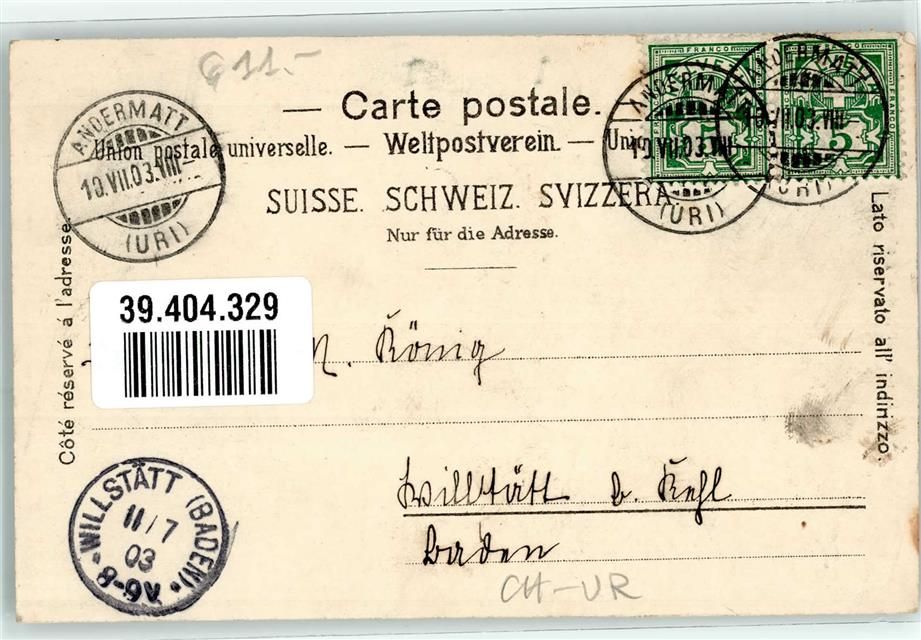 G 11.-
— Carte postale.
Union postale universelle. — Weltpostverein. — Unione
SUISSE. SCHWEIZ. SVIZZERA.
Nur für die Adresse.
ANDERMATT
10.VII.03.VIII
(URI)
FRANCO
5
ANDERMATT
10.VII.03.VIII
(URI)
FRANCO
5
ANDERMATT
10.VII.03.VIII
(URI)
Côté réservé à l'adresse.
Lato riservato all' indirizzo.
39.404.329
König
Willstätt b. Kehl
Baden
WILLSTÄTT (BADEN).
11/7
03
6-8
CH-UR